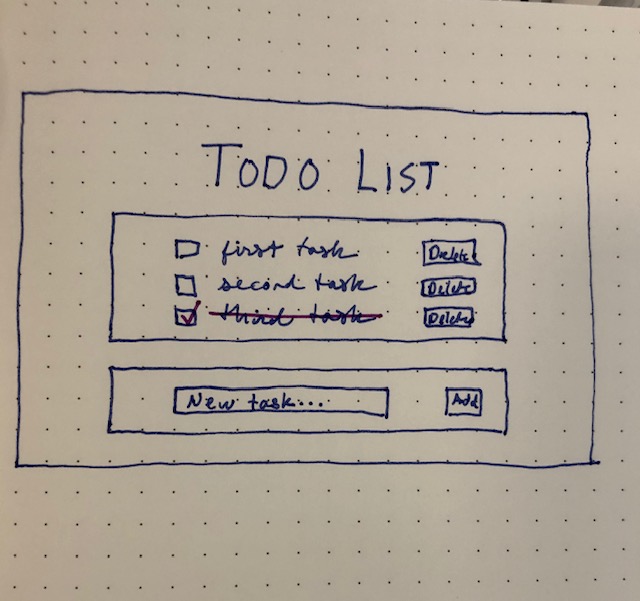 TODO LIST
first task Delete
second task Delete
third task Delete
New task... Add